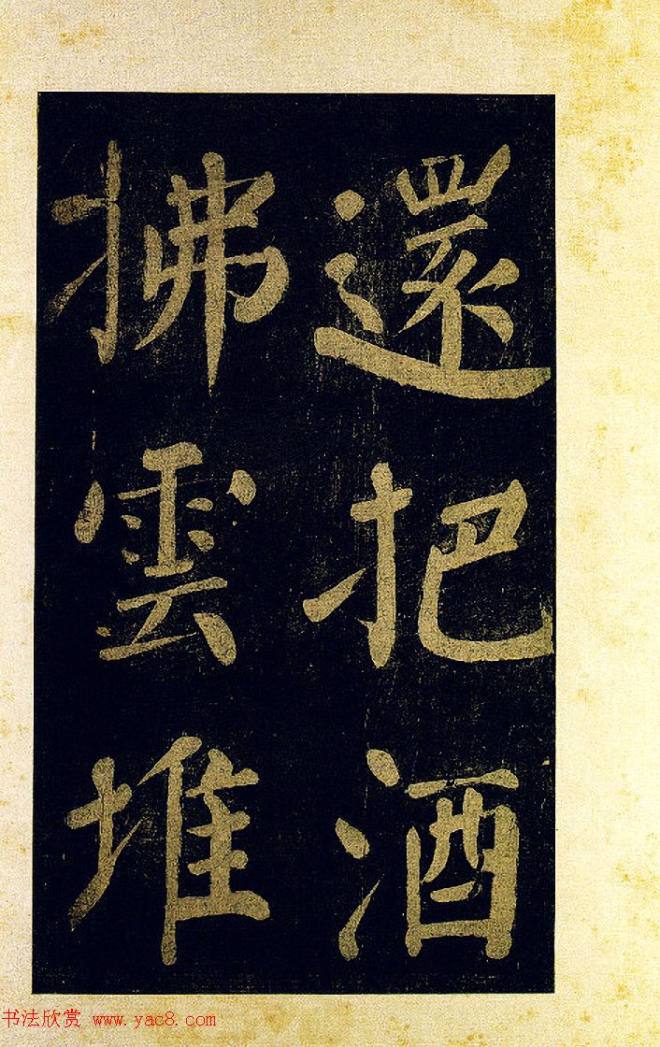 還把酒
拂雲堆
书法欣赏 www.yac8.com